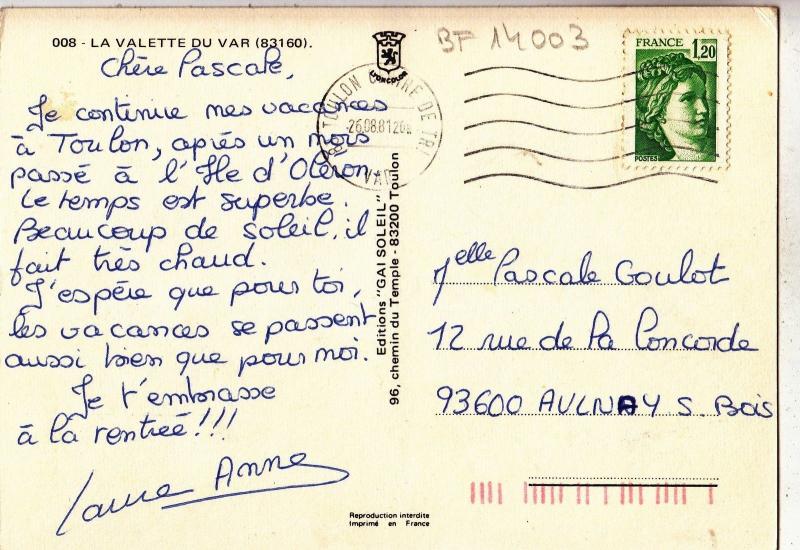 008 - LA VALETTE DU VAR (83160).
Chère Pascale,
Je continue mes vacances
à Toulon, après un mois
passé à l'Ile d'Oléron.
Le temps est superbe.
Beaucoup de soleil, il
fait très chaud.
J'espère que pour toi,
les vacances se passent
aussi bien que pour moi.
Je t'embrasse
à la rentrée!!!
Laure Anne
LYONCOLOR
Editions "GAI SOLEIL"
96, chemin du Temple - 83200 Toulon
Reproduction interdite
Imprimé en France
BF 14003
83 TOULON CENTRE DE TRI
26.08.81
VAR
FRANCE 1,20
POSTES
Melle Pascale Goulot
12 rue de la Concorde
93600 AULNAY S. Bois